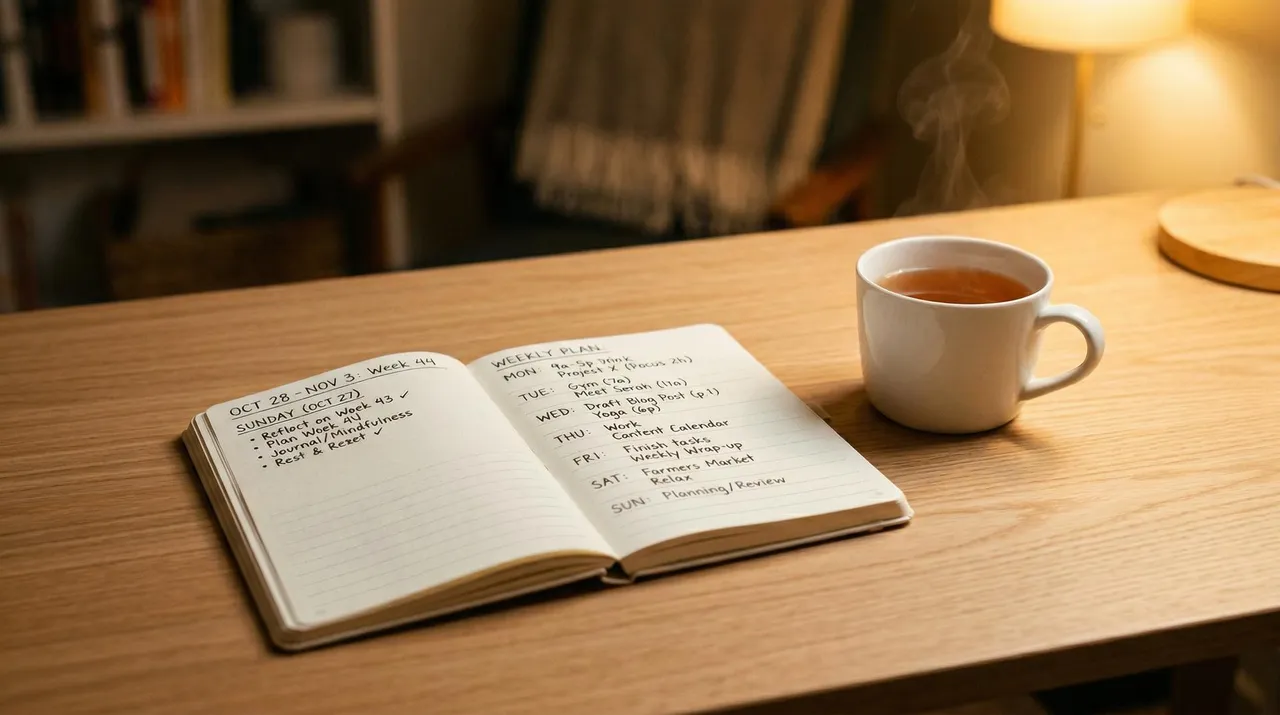 OCT 28 - NOV 3: Week 44
SUNDAY (OCT 27)
• Refloct on Week 43 ✓
• Plan Week 4U
• Journal/Mindfulness
• Rest & Rezet ✓
WEEKLY PLAN:
MON: 9a-Sp
Project X (Focus 2h)
TUE: Gym (7a)
Meet Serah (11a)
WED: Draft Blog Post (p.1)
Yoga (6p)
THU: Work
Cantent Calendar
FRI: Finish tasks
Weekly Wrap-up
SAT: Farmers Market
Relax
SUN: Planning/Review